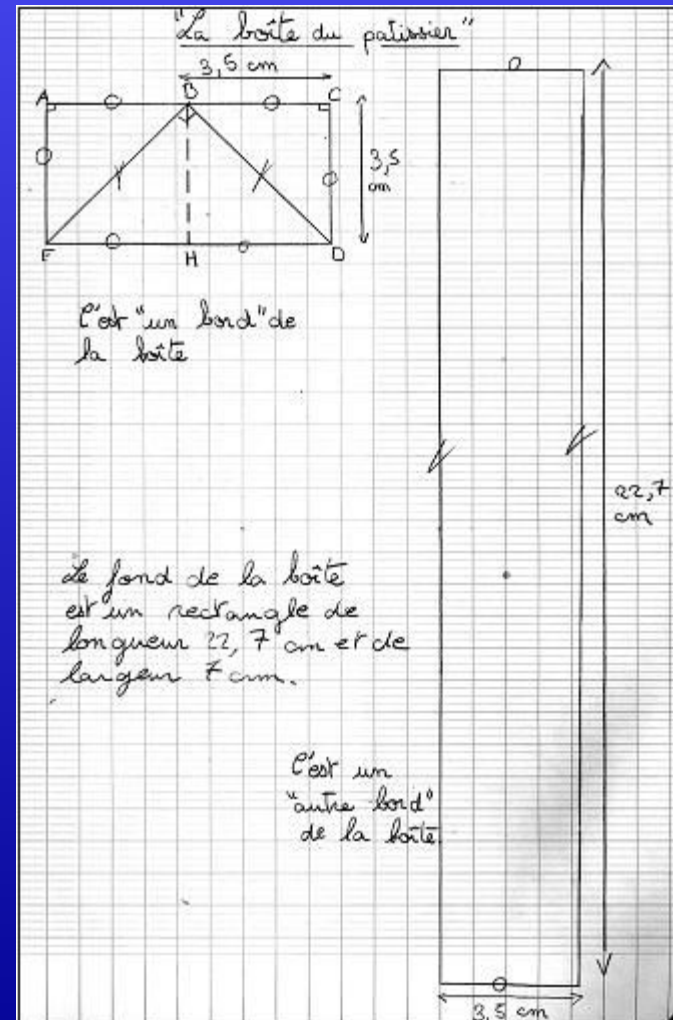 "La boîte du patissier"
3,5 cm
A
B
C
3,5
cm
E
H
D
C'est "un bord" de
la boîte
22,7
cm
Le fond de la boîte
est un rectangle de
longueur 22,7 cm et de
largeur 7 cm.
C'est un
"autre bord"
de la boîte
3,5 cm